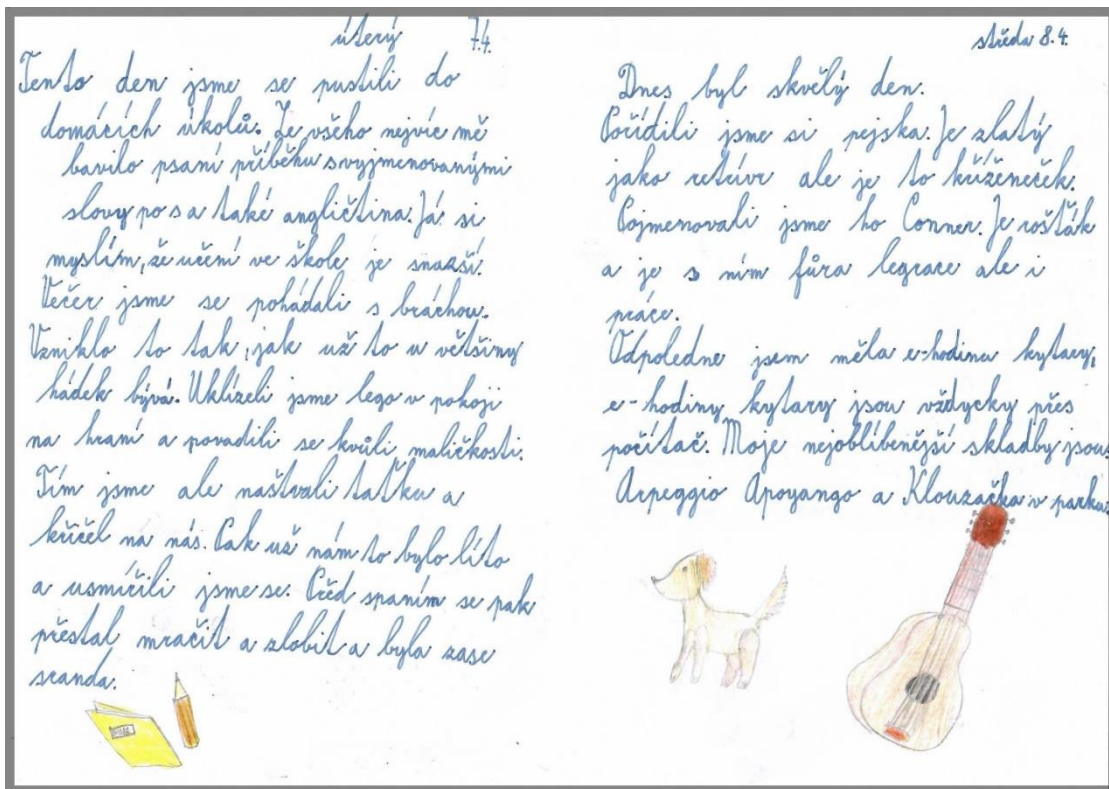 úterý 7.4.
Tento den jsme se pustili do
domácích úkolů. Ze všeho nejvíc mě
bavilo psaní příběhu s vyjmenovanými
slovy po s a také angličtina. Já si
myslím, že učení ve škole je snazší.
Večer jsme se pohádali s bráchou.
Vzniklo to tak, jak už to u většiny
hádek bývá. Uklízeli jsme lego v pokoji
na hraní a povadili se kvůli maličkosti.
Tím jsme ale naštvali taťku a
křičel na nás. Pak už nám to bylo líto
a usmířili jsme se. Před spaním se pak
přestal mračit a zlobit a byla zase
sranda.
středa 8.4.
Dnes byl skvělý den.
Pořídili jsme si pejska. Je zlatý
jako retrívr ale je to kříženeček.
Pojmenovali jsme ho Conner. Je rošťák
a je s ním fůra legrace ale i
práce.
Odpoledne jsem měla e-hodinu kytary,
e-hodiny kytary jsou vždycky přes
počítač. Moje nejoblíbenější skladby jsou:
Arpeggio Apoyango a Klouzačka v parku.